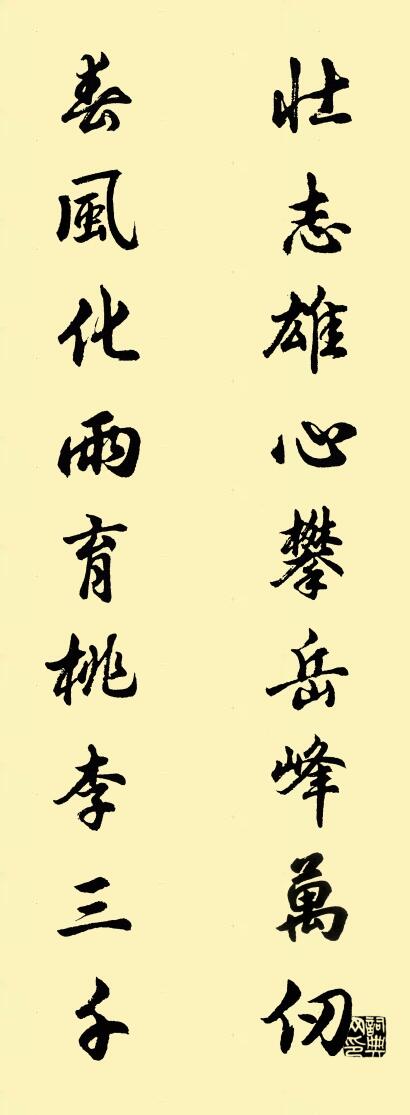 壯志雄心攀岳峰萬仞
春風化雨育桃李三千
詞典网印